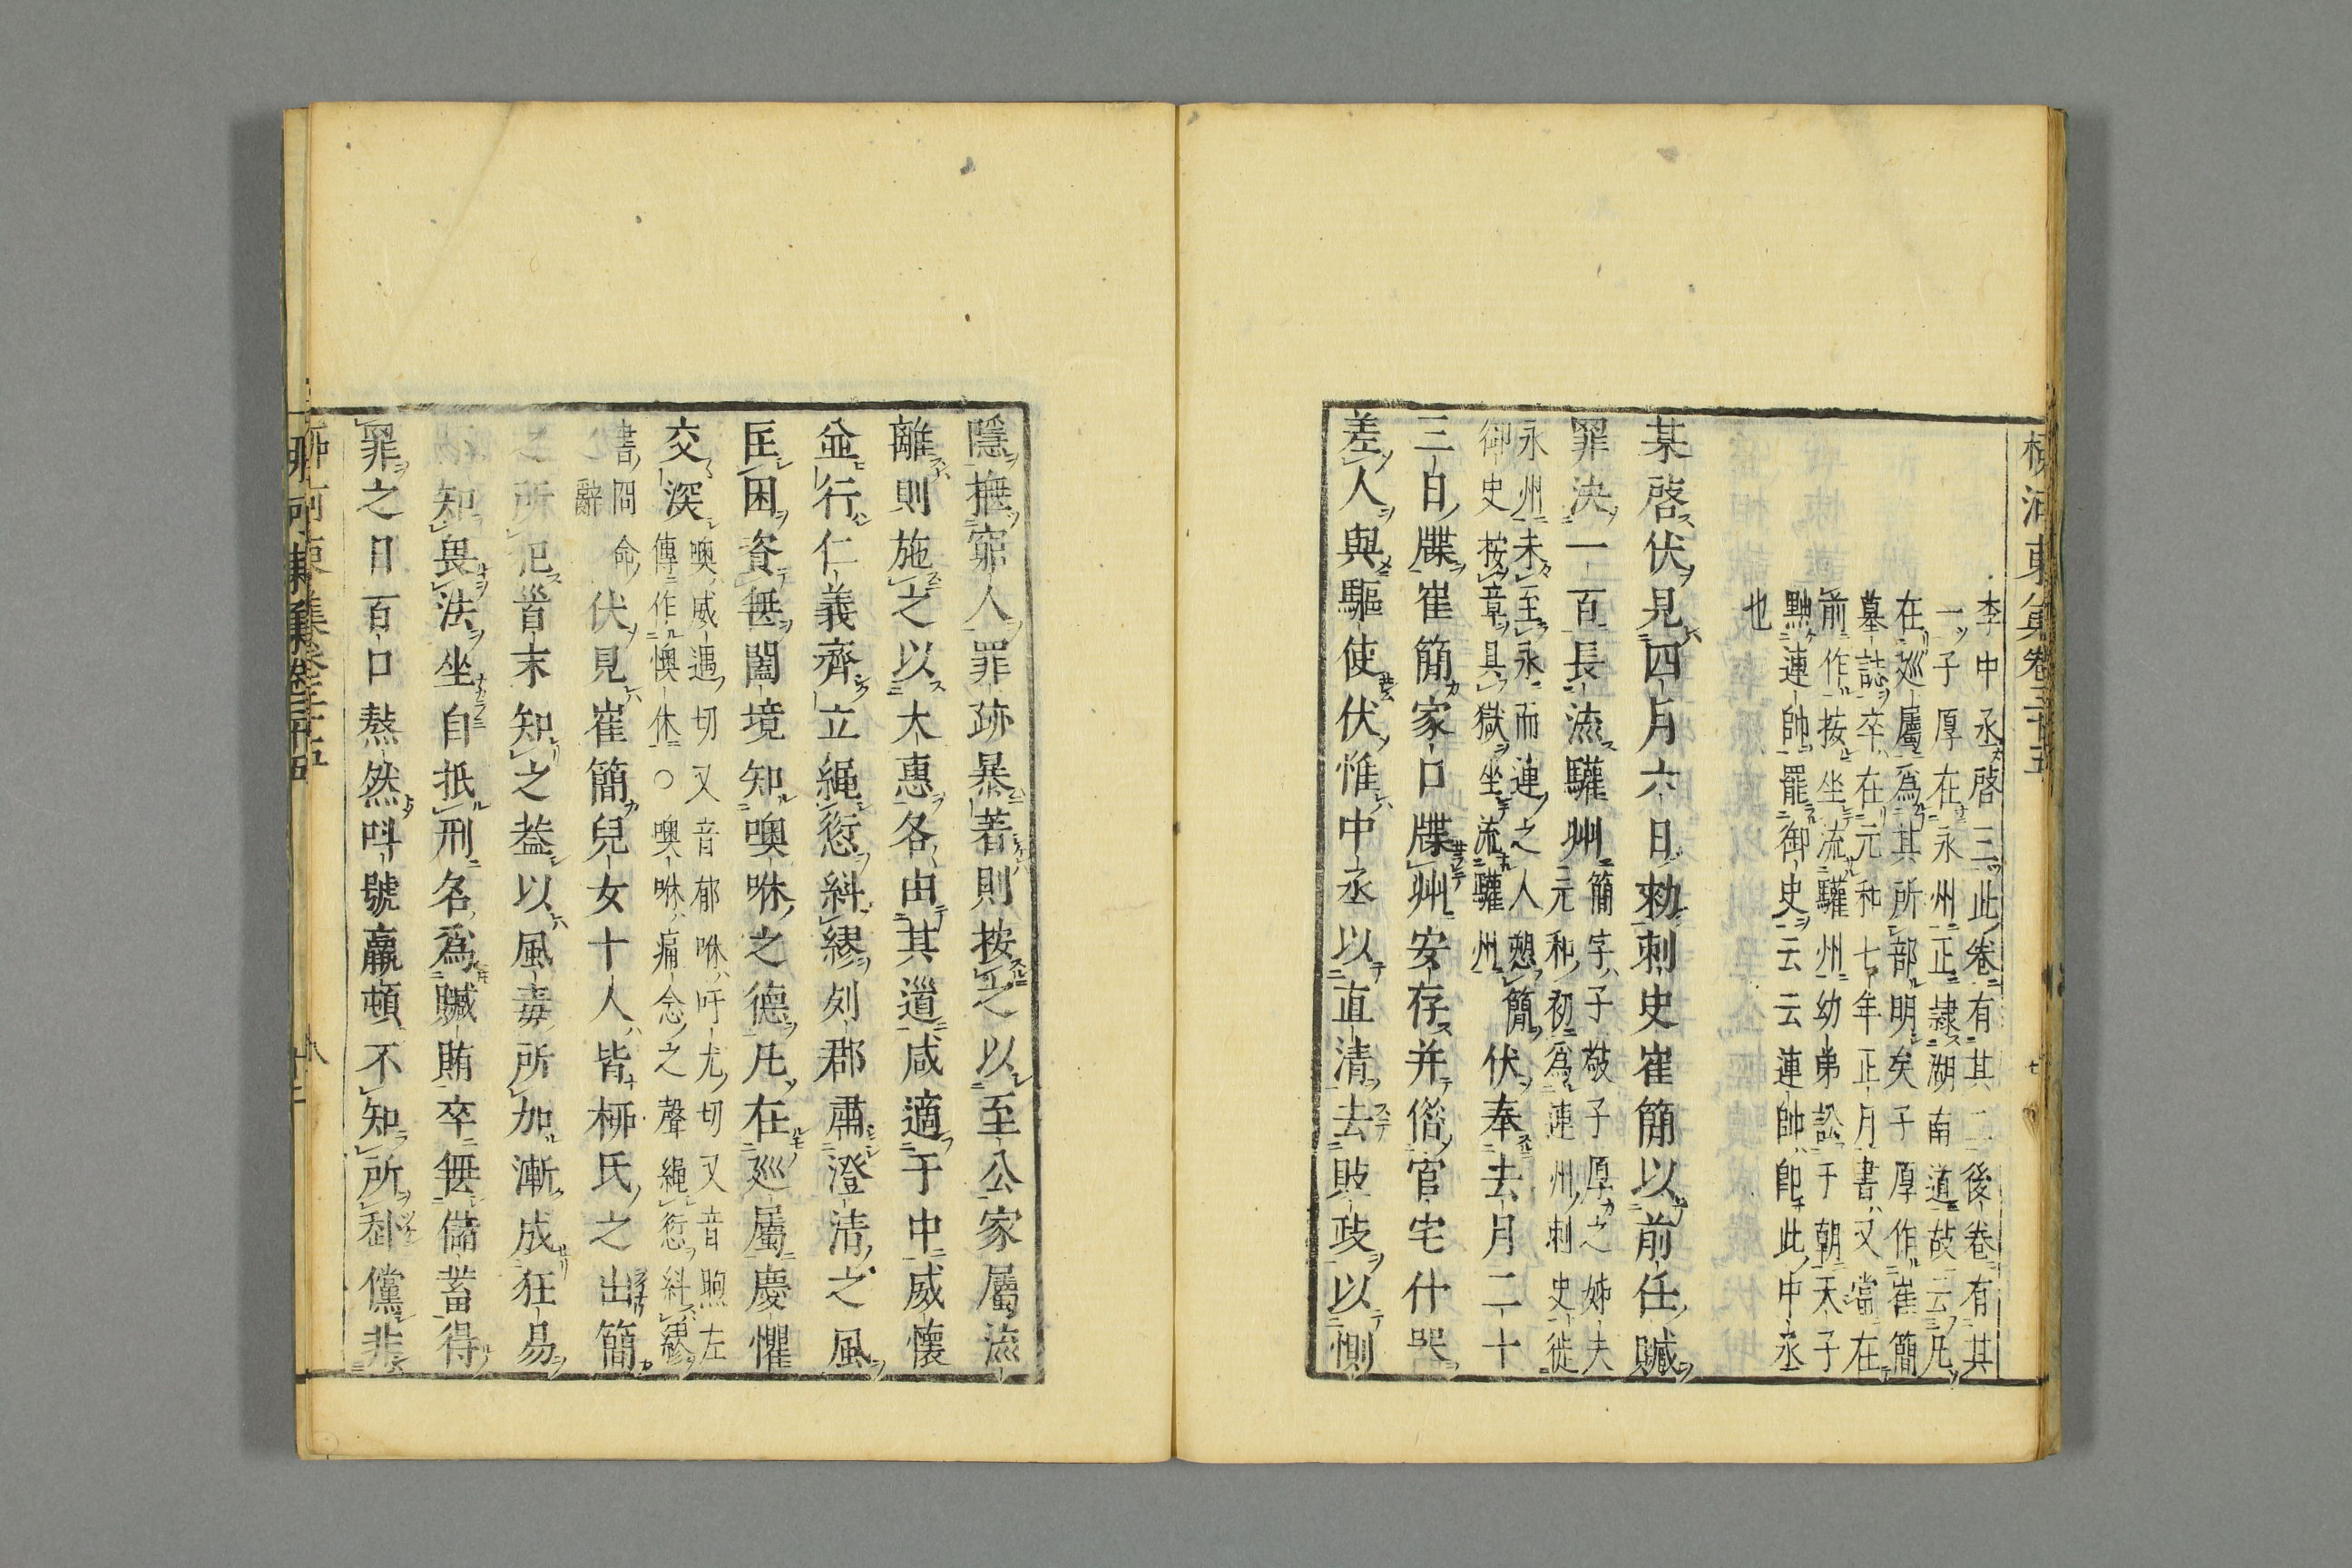 柳河東集卷三十五
七
李中丞啓三此卷有其二後卷有其
一子厚在永州正隷湖南道故云凡
在巡屬為其所部明矣子厚作崔簡
墓誌卒在元和七年正月書又當在
前作按坐流驩州幼弟訟于朝天子
黜連帥罷御史云云連帥即此中丞
也
某啓伏見四月六日勑刺史崔簡以前任贓
罪決一百長流驩州簡字子敬子厚之姊夫元和初為連州刺史徙
永州未至永而連之人愬簡御史按章具獄坐流驩州伏奉去月二十
三日牒崔簡家口牒州安存并借官宅什器
差人與驅使伏惟中丞以直清去敗政以惻
隱撫窮人罪跡暴著則按之以至公家屬流
離則施之以大惠各由其道咸適于中威懷
並行仁義齊立繩愆糾繆列郡肅澄清之風
匡困資無闔境知噢咻之德凡在巡屬慶懼
交深噢威遇切又音郁咻吁尤切又音煦左傳作懊休○噢咻痛念之聲繩愆糾繆
書冏命辭伏見崔簡兒女十人皆柳氏之出簡
之所犯首末知之蓋以風毒所加漸成狂易
知畏法坐自抵刑名為贓賄卒無儲蓄得
罪之日百口熬然叫號羸頓不知所
儻非
柳河東集卷三十五
八